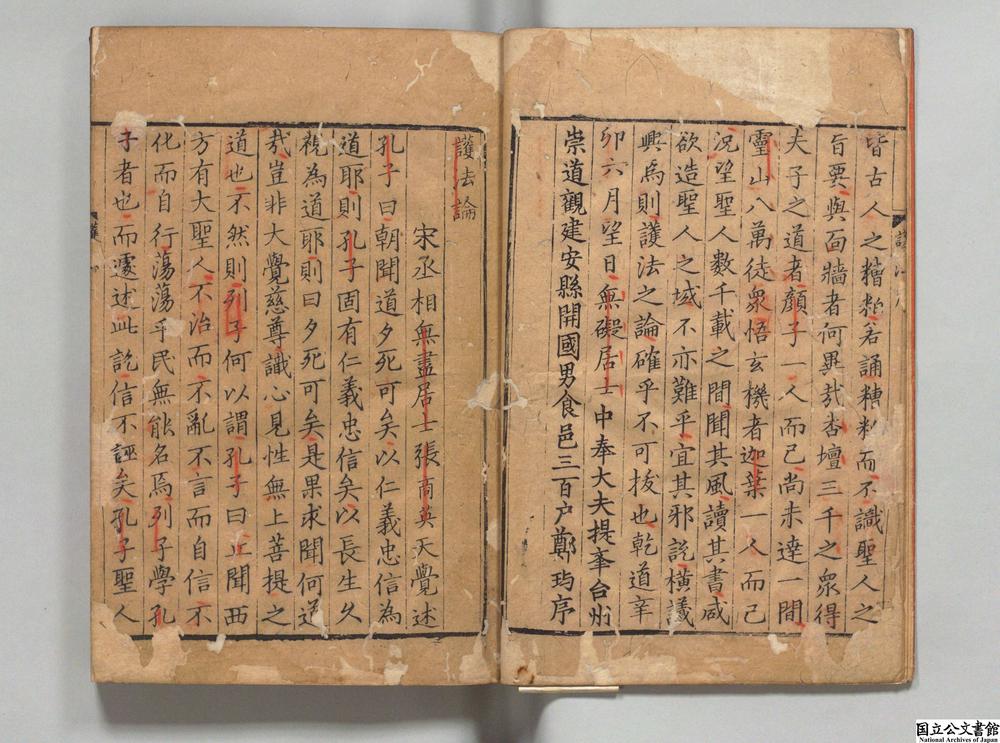 皆古人之糟粕若誦糟粕而不識聖人之
旨要與面牆者何異哉杏壇三千之衆得
夫子之道者顏子一人而已尚未達一間
靈山八萬徒衆悟玄機者迦葉一人而已
况望聖人數千載之間聞其風讀其書咸
欲造聖人之域不亦難乎宜其邪說橫議
興焉則護法之論確乎不可拔也乾道辛
卯六月望日無礙居士中奉大夫提舉台州
崇道觀建安縣開國男食邑三百户鄭璵序
護法論
宋丞相無盡居士張商英天覺述
孔子曰朝聞道夕死可矣以仁義忠信為
道耶則孔子固有仁義忠信矣以長生久
視為道耶則曰夕死可矣是果求聞何道
哉豈非大覺慈尊識心見性無上菩提之
道也不然則列子何以謂孔子曰丘聞西
方有大聖人不治而不亂不言而自信不
化而自行蕩蕩乎民無能名焉列子學孔
子者也而遽述此說信不誣矣孔子聖人
国立公文書館
National Archives of Japan